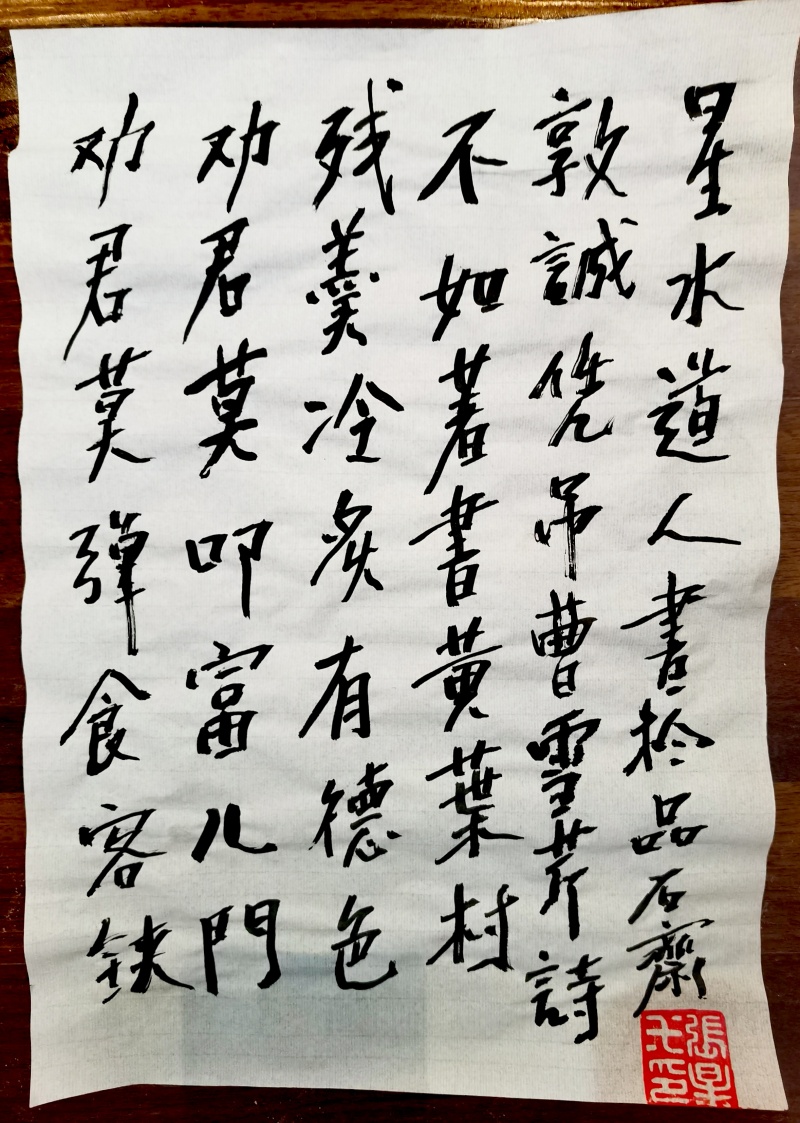 劝君莫弹食客鋏
劝君莫叩富儿門
残羹冷炙有德色
不如著書黄葉村
敦誠凭吊曹雪芹詩
星水道人書於品石齋